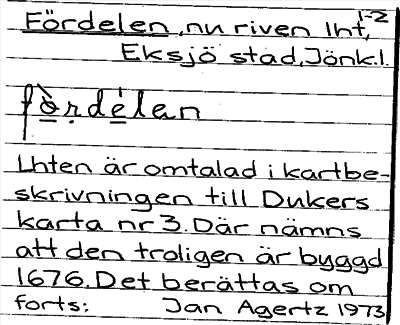 1-2
Fördelen, nu riven lht,
Eksjö stad, Jönk.l.
fö̀rdélan
Lhten är omtalad i kartbe-
skrivningen till Dukers
karta nr 3. Där nämns
att den troligen är byggd
1676. Det berättas om
forts: Jan Agertz 1973